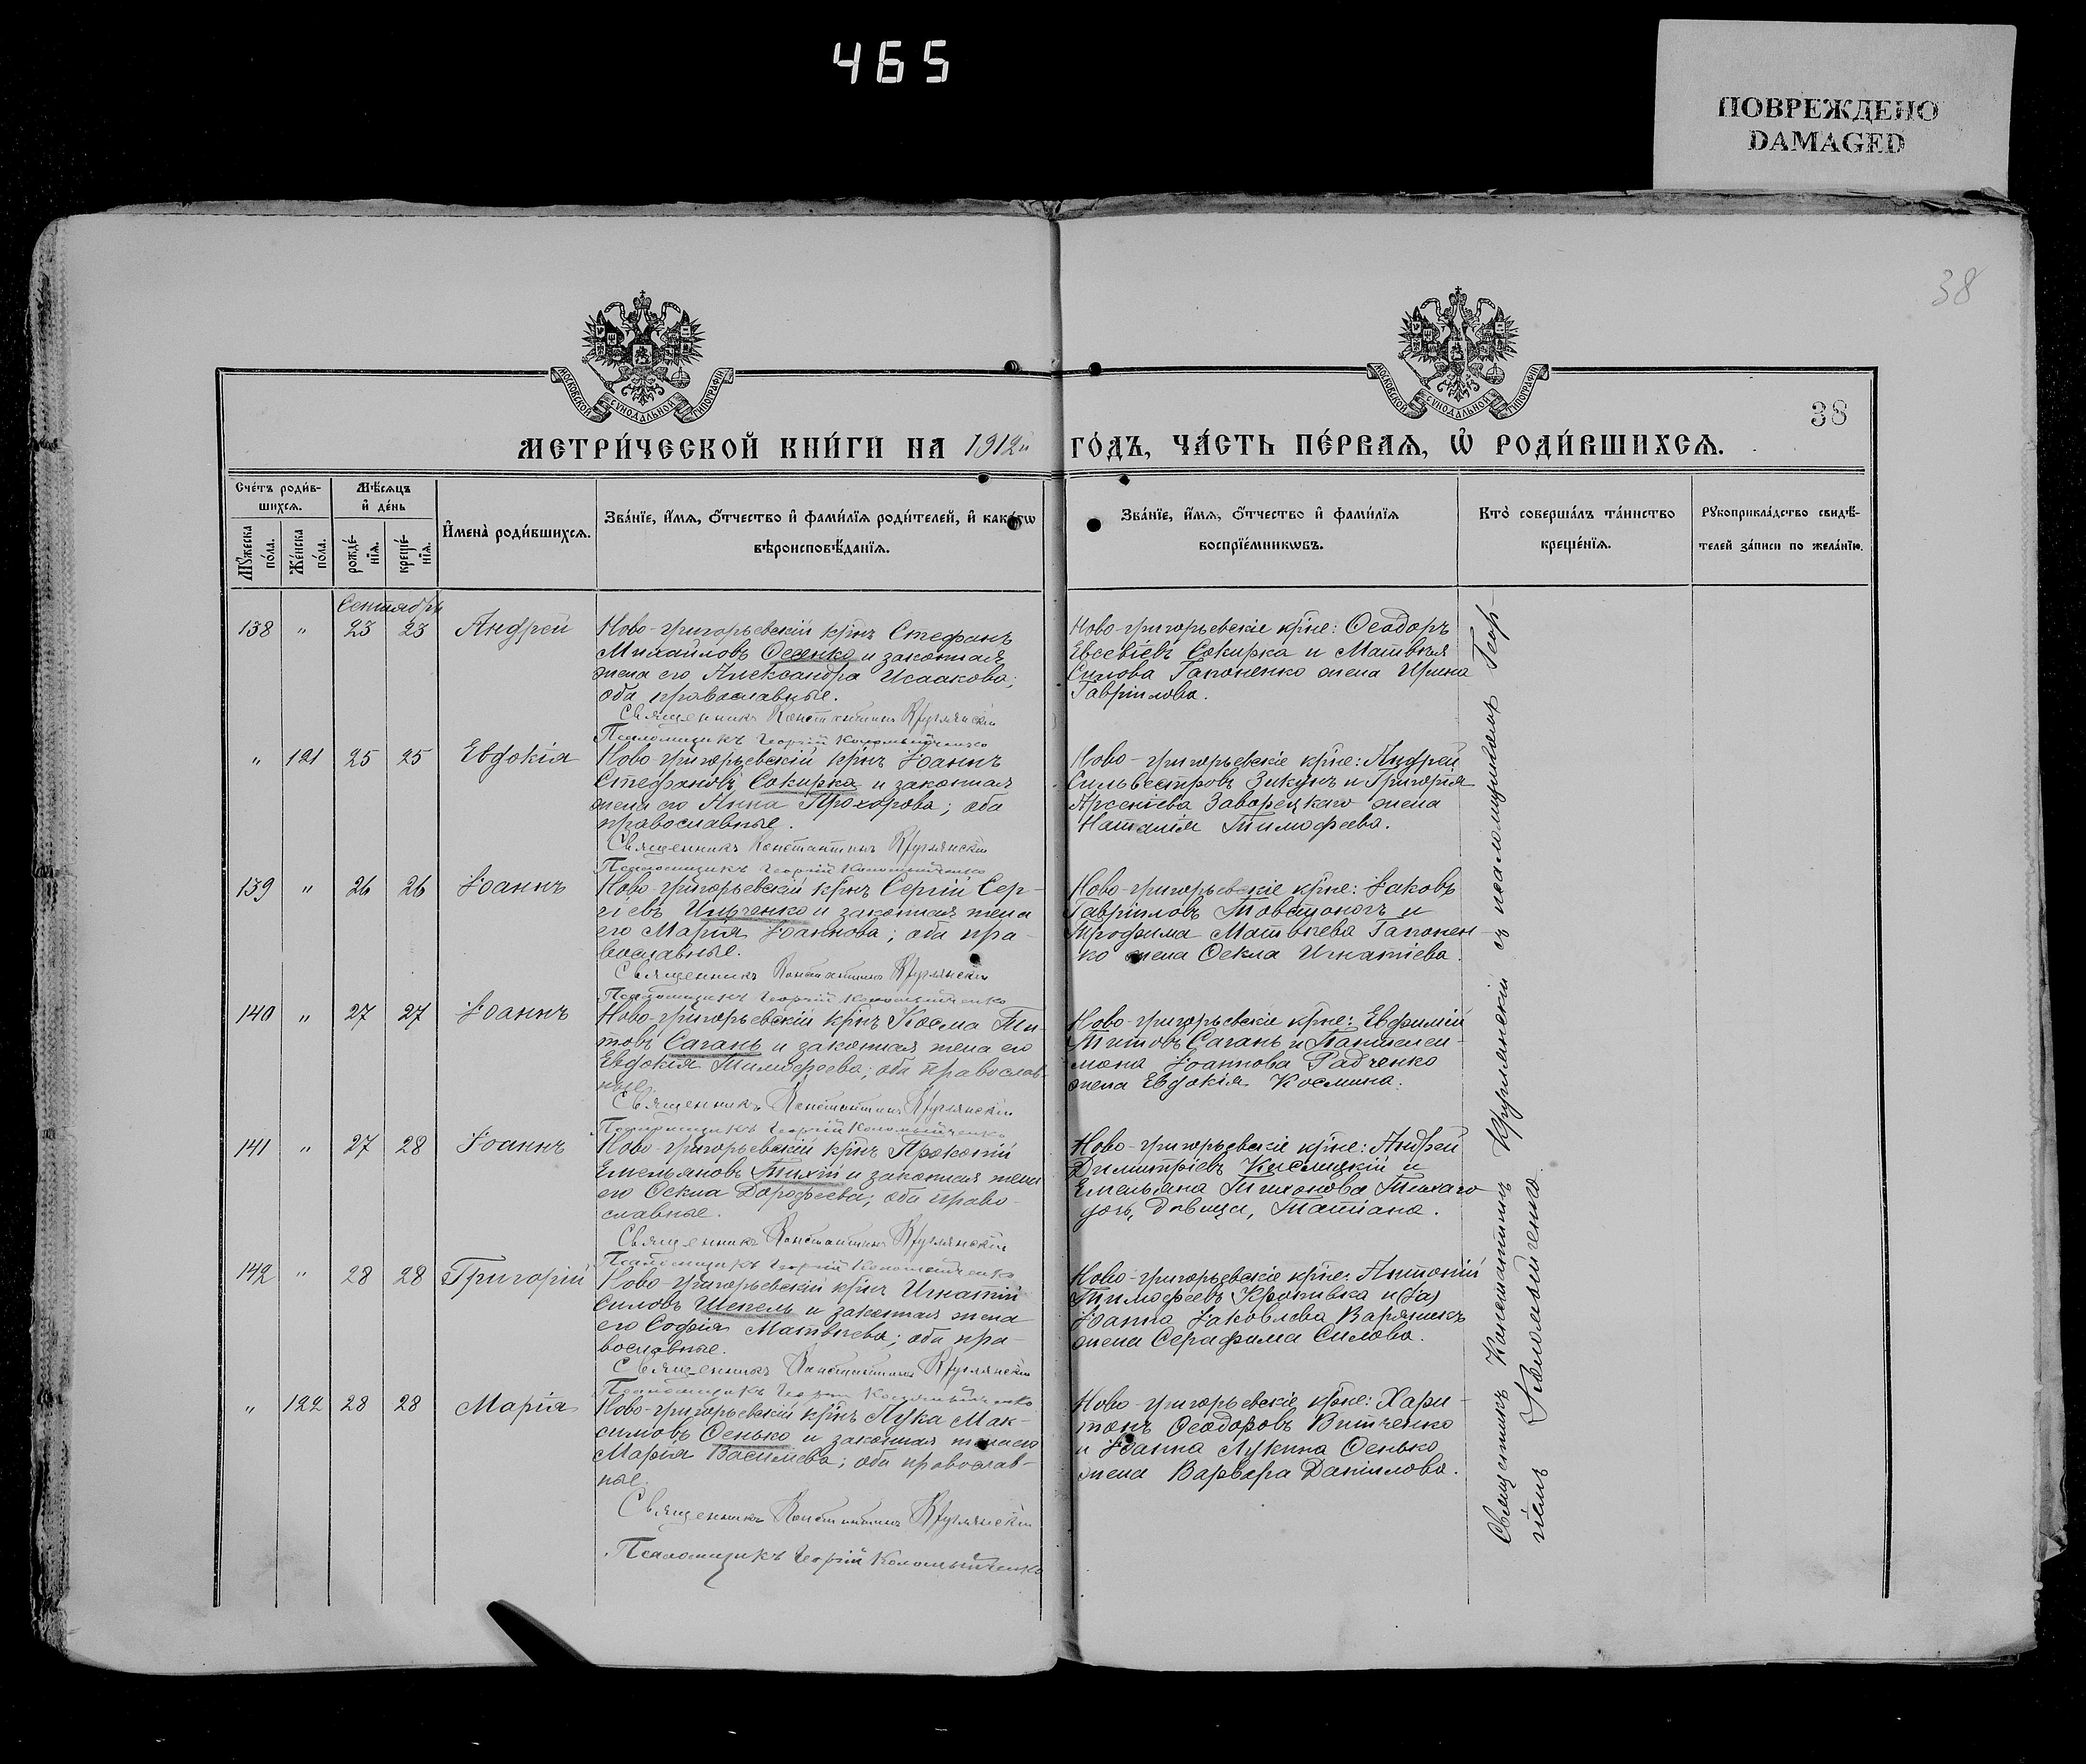 465
ПОВРЕЖДЕНО
DAMAGED
38
МОСКОВСКОЙ СѴНОДАЛЬНОЙ ТИПОГРАФІИ
МОСКОВСКОЙ СѴНОДАЛЬНОЙ ТИПОГРАФІИ
38
МЕТРИ́ЧЕСКОЙ КНИ́ГИ НА 1912й ГО́ДЪ, ЧА́СТЬ ПЕ́РВАѦ, Ѡ҆ РОДИ́ВШИХСѦ.
Сче́тъ роди́в-
шихсѧ.
Мѣ́сѧцъ
и҆ де́нь
Мꙋ́жеска
по́ла.
Же́нска
по́ла.
рожде́-
нїѧ.
креще́-
нїѧ.
И҆мена̀ роди́вшихсѧ.
Зва́нїе, и҆́мѧ, ѻ҆́тчество и҆ фами́лїѧ роди́телей, и҆ како́гѡ
вѣроисповѣ́данїѧ.
Зва́нїе, и҆́мѧ, ѻ҆́тчество и҆ фами́лїѧ
воспрїе́мникѡвъ.
Кто̀ соверша́лъ та́инство
креще́нїѧ.
Рꙋкоприкла́дство свидѣ́-
телей за́писи по жела́нїю.
Сентябрь
138 " 23 23 Андрей
Ново-григорьевскій крнъ Стефанъ
Михаиловъ Осенко и законная
жена его Александра Исаакова;
оба православные.
Священникъ Константинъ Круглянскій
Псаломщикъ Георгій Коломыйченко
Ново-григорьевскіе крне: Ѳеодоръ
Евсевіевъ Сокирка и Матвѣя
Силова Гапоненко жена Ирина
Гавріилова.
" 121 25 25 Евдокія
Ново григорьевскій крнъ Іоаннъ
Стефановъ Сокирка и законная
жена его Анна Прохорова; оба
православные.
Священникъ Константинъ Круглянскій
Псаломщикъ Георгій Коломыйченко
Ново-григорьевскіе крне: Андрей
Сильвестровъ Зикунъ и Григорія
Арсеніева Заворецкаго жена
Наталія Тимофеева.
139 " 26 26 Іоаннъ
Ново-григорьевскій крнъ Сергій Сер-
гіевъ Ильченко и законная жена
его Марія Іоаннова; оба пра-
вославные.
Священникъ Константинъ Круглянскій
Псаломщикъ Георгій Коломыйченко
Ново-григорьевскіе крне: Іаковъ
Гавріиловъ Товстоногъ и
Трофима Матвѣева Гапонен-
ко жена Ѳекла Игнатіева.
140 " 27 27 Іоаннъ
Ново-григорьевскій крнъ Косма Ти-
товъ Саганъ и законная жена его
Евдокія Тимофеева; оба православ-
ные.
Священникъ Константинъ Круглянскій
Псаломщикъ Георгій Коломыйченко
Ново-григорьевскіе крне: Евфимій
Титовъ Саганъ и Пантелеи-
мона Іоаннова Радченко
жена Евдокія Космина.
141 " 27 28 Іоаннъ
Ново-григорьевскій крнъ Прокопій
Емельяновъ Тихій и законная жена
его Ѳекла Дорофеева; оба право-
славные.
Священникъ Константинъ Круглянскій
Псаломщикъ Георгій Коломыйченко
Ново-григорьевскіе крне: Андрей
Димитріевъ Кислицкій и
Емельяна Тихонова Тихаго
дочь, дѣвица, Татіана.
142 " 28 28 Григорій
Ново-григорьевскій крнъ Игнатій
Силовъ Шепель и законная жена
его Софія Матвѣева; оба пра-
вославные.
Священникъ Константинъ Круглянскій
Псаломщикъ Георгій Коломыйченко
Ново-григорьевскіе крне: Антоній
Тимофеевъ Кропивка и
Іоанна Іаковлева Варяникъ
жена Серафима Силова.
" 122 28 28 Марія
Ново-григорьевскій крнъ Лука Мак-
симовъ Осенько и законная жена его
Марія Василіева; оба православ-
ные.
Священникъ Константинъ Круглянскій
Псаломщикъ Георгій Коломыйченко
Ново-григорьевскіе крне: Хари-
тонъ Ѳеодоровъ Витченко
и Іоанна Лукина Осенько
жена Варвара Даніилова.
Священникъ Константинъ Круглянскій съ псаломщикомъ Геор-
гіемъ Коломыйченко.